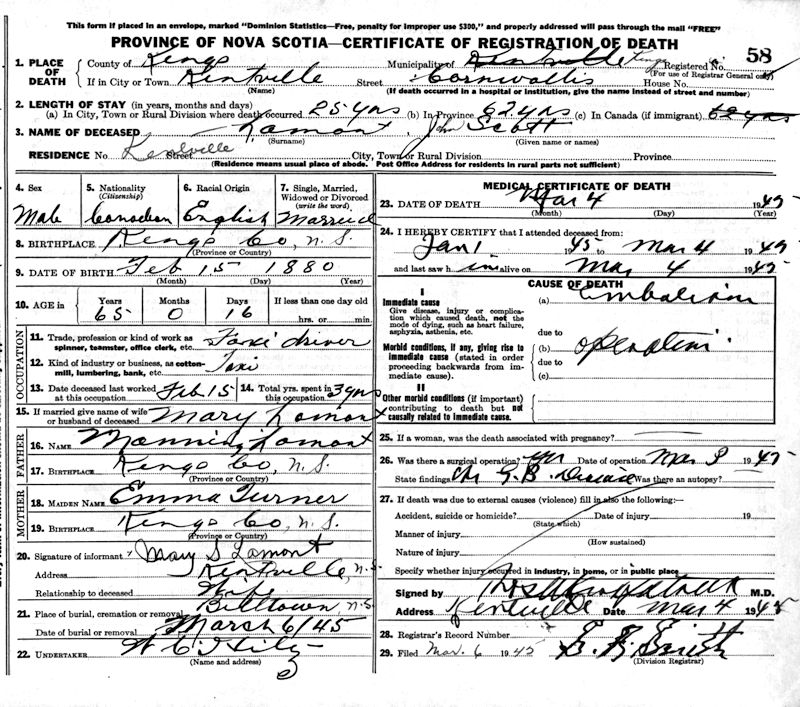 This form if placed in an envelope, marked "Dominion Statistics—Free, penalty for improper use $300," and properly addressed will pass through the mail "FREE"
PROVINCE OF NOVA SCOTIA—CERTIFICATE OF REGISTRATION OF DEATH
58
1. PLACE OF DEATH County of Kings Municipality of Kentville Kings Registered No.
(For use of Registrar General only)
If in City or Town Kentville Street Cornwallis House No.
(Name) (If death occurred in a hospital or institution, give the name instead of street and number)
2. LENGTH OF STAY (in years, months and days)
(a) In City, Town or Rural Division where death occurred 25 yrs (b) In Province 62 yrs (c) In Canada (if immigrant)
3. NAME OF DECEASED Lamont John Scott
(Surname) (Given name or names)
RESIDENCE No. Kentville Street City, Town or Rural Division Province
(Residence means usual place of abode. Post Office Address for residents in rural parts not sufficient)
4. Sex Male
5. Nationality (Citizenship) Canadian
6. Racial Origin English
7. Single, Married, Widowed or Divorced (write the word) Married
8. BIRTHPLACE Kings Co, N.S.
(Province or Country)
9. DATE OF BIRTH Feb 15 1880
(Month) (Day) (Year)
10. AGE in Years 65 Months 0 Days 16 If less than one day old
hrs. or min.
OCCUPATION
11. Trade, profession or kind of work as spinner, teamster, office clerk, etc. Taxi driver
12. Kind of industry or business, as cotton-mill, lumbering, bank, etc. Taxi
13. Date deceased last worked at this occupation Feb 15 14. Total yrs. spent in this occupation 3 yrs
15. If married give name of wife or husband of deceased Mary Lamont
FATHER
16. NAME Manning Lamont
17. BIRTHPLACE Kings Co, N.S.
(Province or Country)
MOTHER
18. MAIDEN NAME Emma Turner
19. BIRTHPLACE Kings Co, N.S.
(Province or Country)
20. Signature of informant Mary S Lamont
Address Kentville, N.S.
Relationship to deceased Wife
21. Place of burial, cremation or removal Billtown, N.S.
Date of burial or removal March 6/45
22. UNDERTAKER W C
(Name and address)
MEDICAL CERTIFICATE OF DEATH
23. DATE OF DEATH Mar 4 1945
(Month) (Day) (Year)
24. I HEREBY CERTIFY that I attended deceased from:
Jan 1 1945 to Mar 4 1945
and last saw h im alive on Mar 4 1945
CAUSE OF DEATH
I
Immediate cause
Give disease, injury or complication which caused death, not the mode of dying, such as heart failure, asphyxia, asthenia, etc.
(a) Embolism
due to
Morbid conditions, if any, giving rise to immediate cause (stated in order proceeding backwards from immediate cause).
(b) operation
due to
(c)
II
Other morbid conditions (if important) contributing to death but not causally related to immediate cause.
25. If a woman, was the death associated with pregnancy?
26. Was there a surgical operation? yes Date of operation Mar 3 1945
State findings Chr G.B. Disease Was there an autopsy?
27. If death was due to external causes (violence) fill in also the following:—
Accident, suicide or homicide? Date of injury 19
(State which)
Manner of injury
(How sustained)
Nature of injury
Specify whether injury occurred in industry, in home, or in public place
Signed by M.D.
Address Kentville Date Mar 4 1945
28. Registrar's Record Number
29. Filed Mar. 6 1945
(Division Registrar)